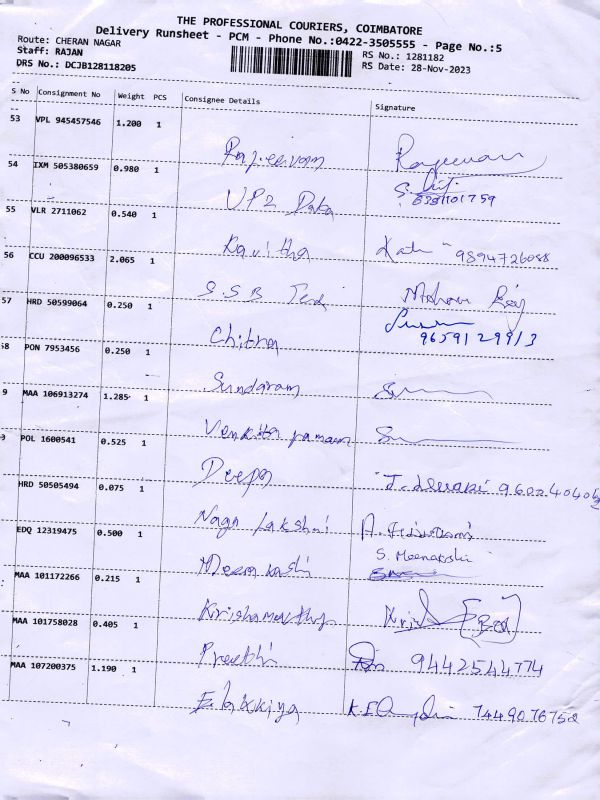 THE PROFESSIONAL COURIERS, COIMBATORE
Delivery Runsheet - PCM - Phone No.:0422-3505555 - Page No.:5
Route: CHERAN NAGAR
Staff: RAJAN
DRS No.: DCJB128118205
RS No.: 1281182
RS Date: 28-Nov-2023
S No Consignment No Weight PCS Consignee Details Signature
53 VPL 945457546 1.200 1
54 IXM 505380659 0.980 1 Rajeevan Rajeevan
S.
8381101759
55 VLR 2711062 0.540 1 UPZ Data
56 CCU 200096533 2.065 1 Kavitha 9894726088
57 HRD 50599064 0.250 1 S.S.B Mohan Raj
58 PON 7953456 0.250 1 Chitra 9659129913
9 MAA 106913274 1.285 1 Sundaram
POL 1600541 0.525 1 Venkitta raman
HRD 50505494 0.075 1 Deepa 9602404062
EDQ 12319475 0.500 1 Naga Lakshmi
S. Meenakshi
MAA 101172266 0.215 1 Meenakshi
MAA 101758028 0.405 1 Krishamurthy
MAA 107200375 1.190 1 Preethi 9442544774
Elakkiya 7449076752